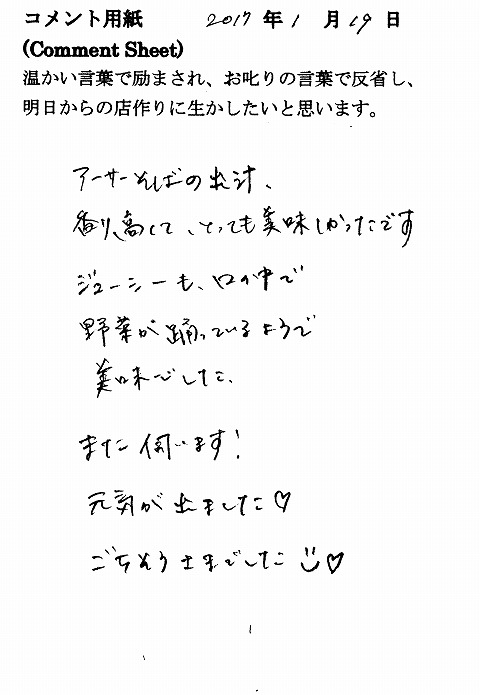 コメント用紙 2017 年 1 月 19 日
(Comment Sheet)
温かい言葉で励まされ、お叱りの言葉で反省し、
明日からの店作りに生かしたいと思います。
アーサーそばの出汁、
香り高くて、とっても美味しかったです
ジューシーも、口の中で
野菜が踊っているようで
美味でした、
また伺います!
元気が出ました♡
ごちそうさまでした☺♡